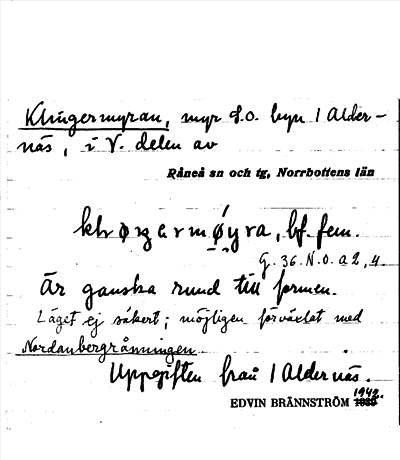 Klingermyran, myr S.O. byn 1 Alder-
näs, i V. delen av
Råneå sn och tg, Norrbottens län
bf. fem.
G. 36. N.O. a 2, 4.
Är ganska rund till formen.
Läget ej säkert; möjligen förväxlat med
Nordanbergrånningen
Uppgiften från 1 Aldernäs.
1942.
EDVIN BRÄNNSTRÖM